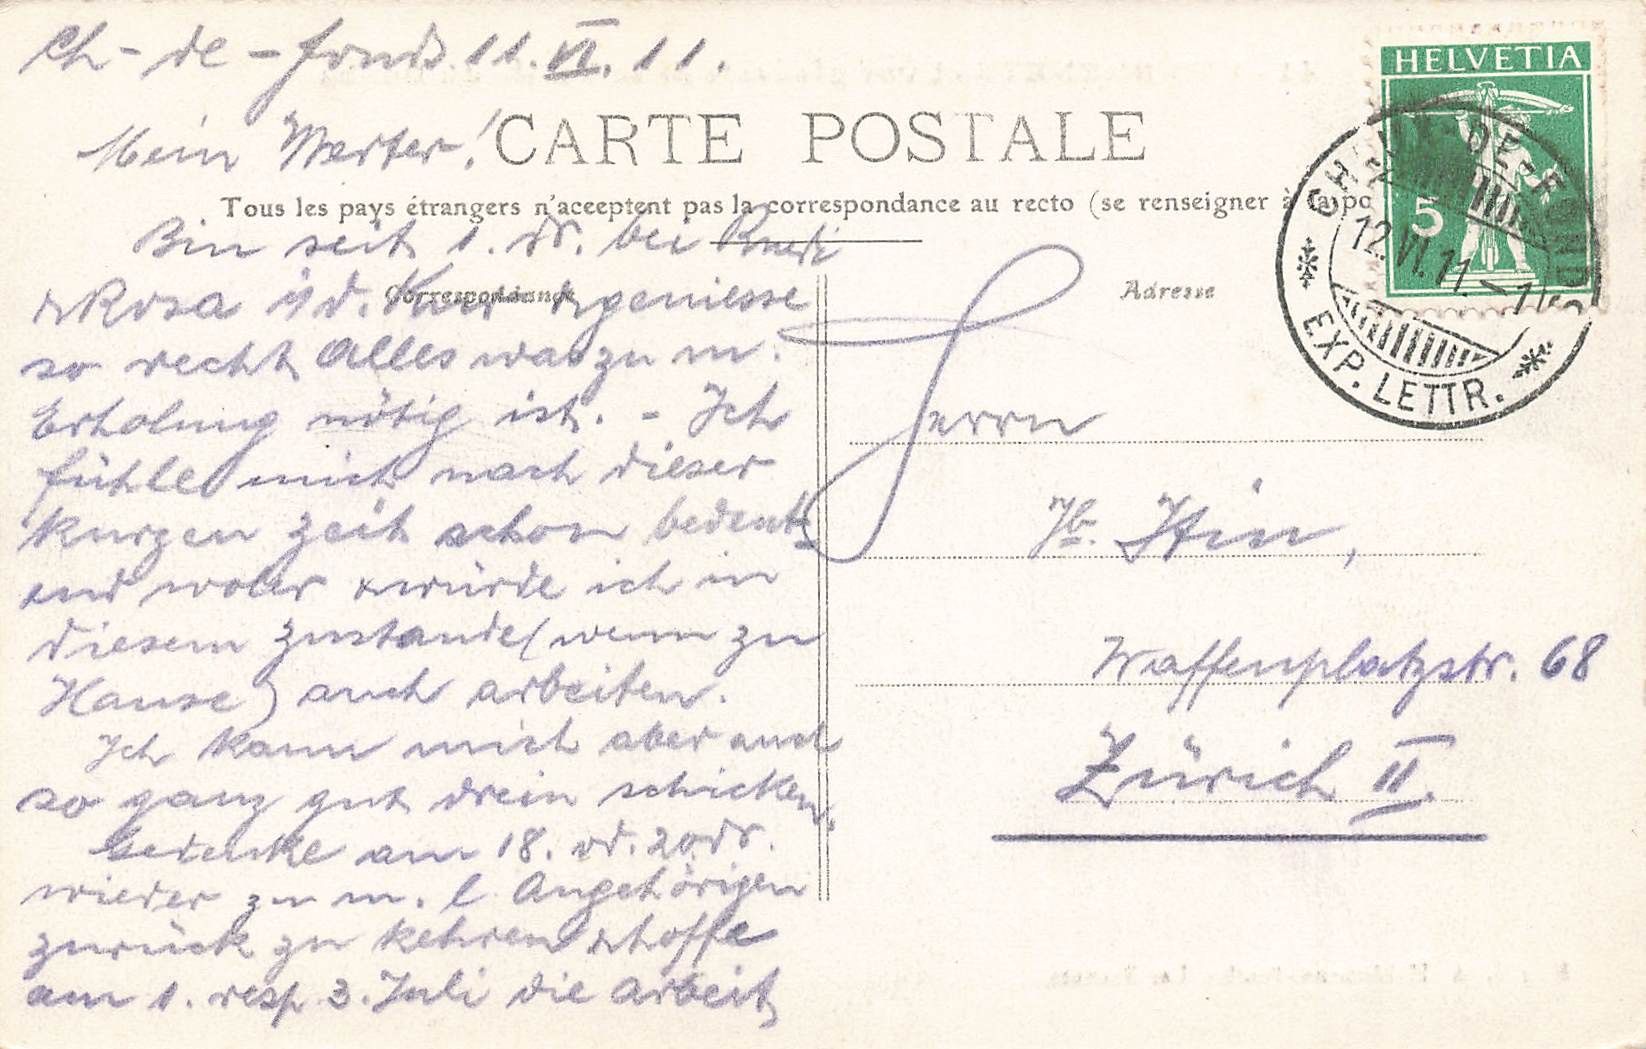 Ch-de-fonds. 11. VI. 11.
Mein Werter!
CARTE POSTALE
Tous les pays étrangers n'acceptent pas la correspondance au recto (se renseigner à la po
Correspondance
Adresse
Bin seit 1. ds. bei Ruedi
& Rosa i/d. Kur & geniesse
so recht Alles was zu m.
Erholung nötig ist. - Ich
fühle mich nach dieser
kurzen Zeit schon bedeut-
end woler & würde ich in
diesem Zustande (wenn zu
Hause) auch arbeiten.
Ich kann mich aber auch
so ganz gut drein schicken.
Gedenke am 18. od. 20. ds.
wieder zu m. l. Angehörigen
zurück zu kehren & hoffe
am 1. resp. 3. Juli die Arbeit
Herrn
Hin,
Waffenplatzstr. 68
Zürich II.
HELVETIA
5
CHAUX-DE-FONDS
12.VI.11.-1
EXP. LETTR.